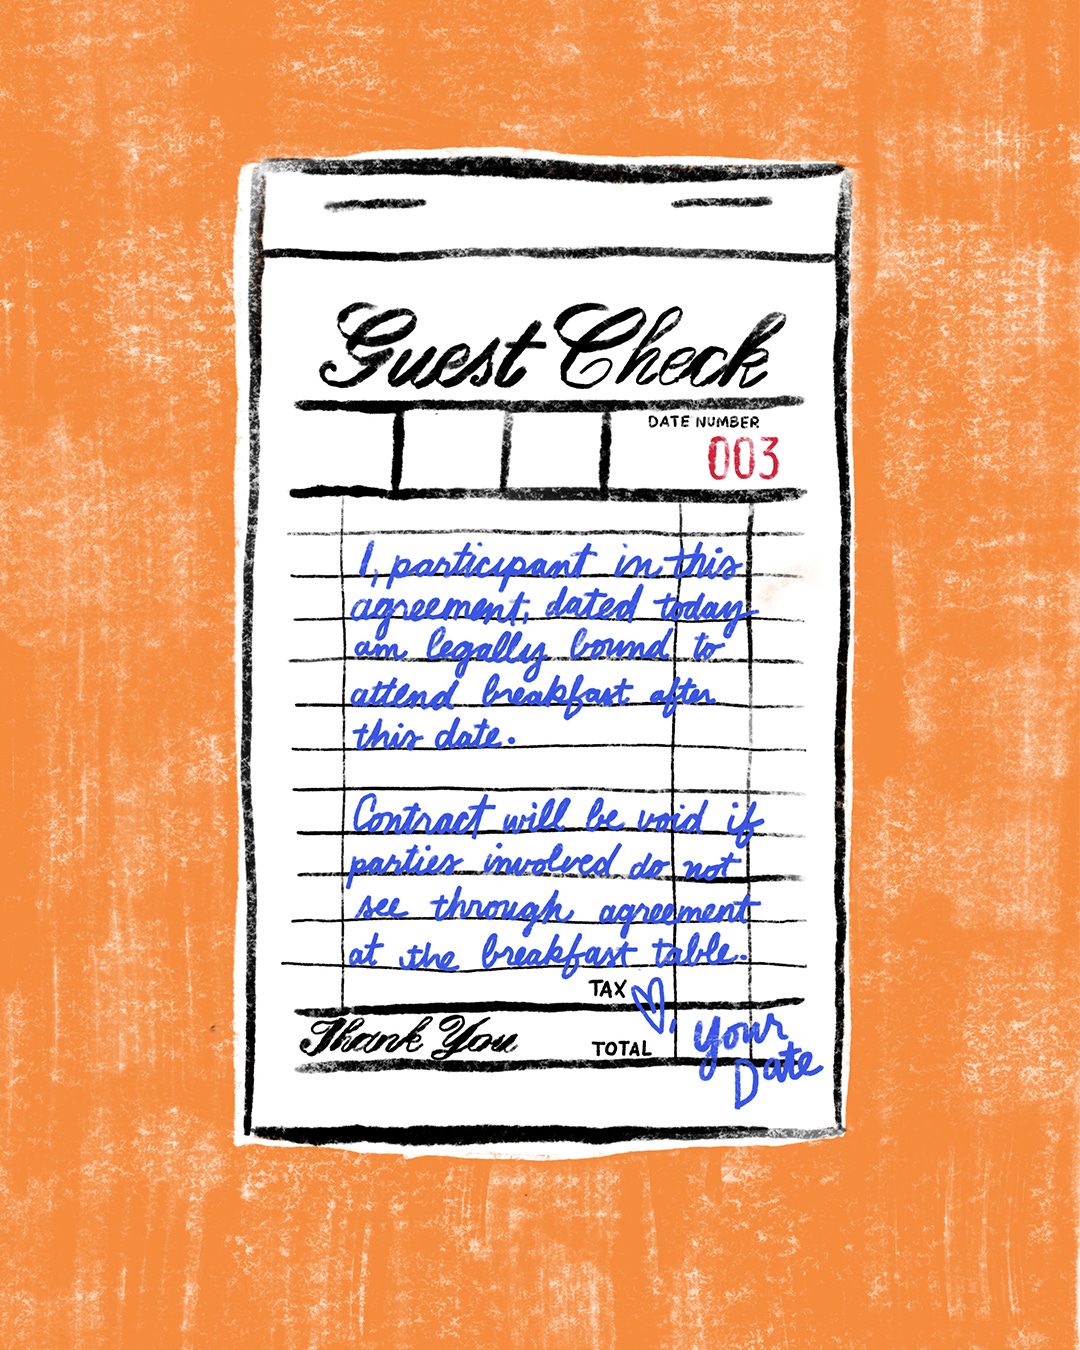 Guest Check
DATE NUMBER
003
I, participant in this
agreement, dated today
am legally bound to
attend breakfast after
this date.
Contract will be void if
parties involved do not
see through agreement
at the breakfast table.
TAX
♡, Your
Date
Thank You
TOTAL